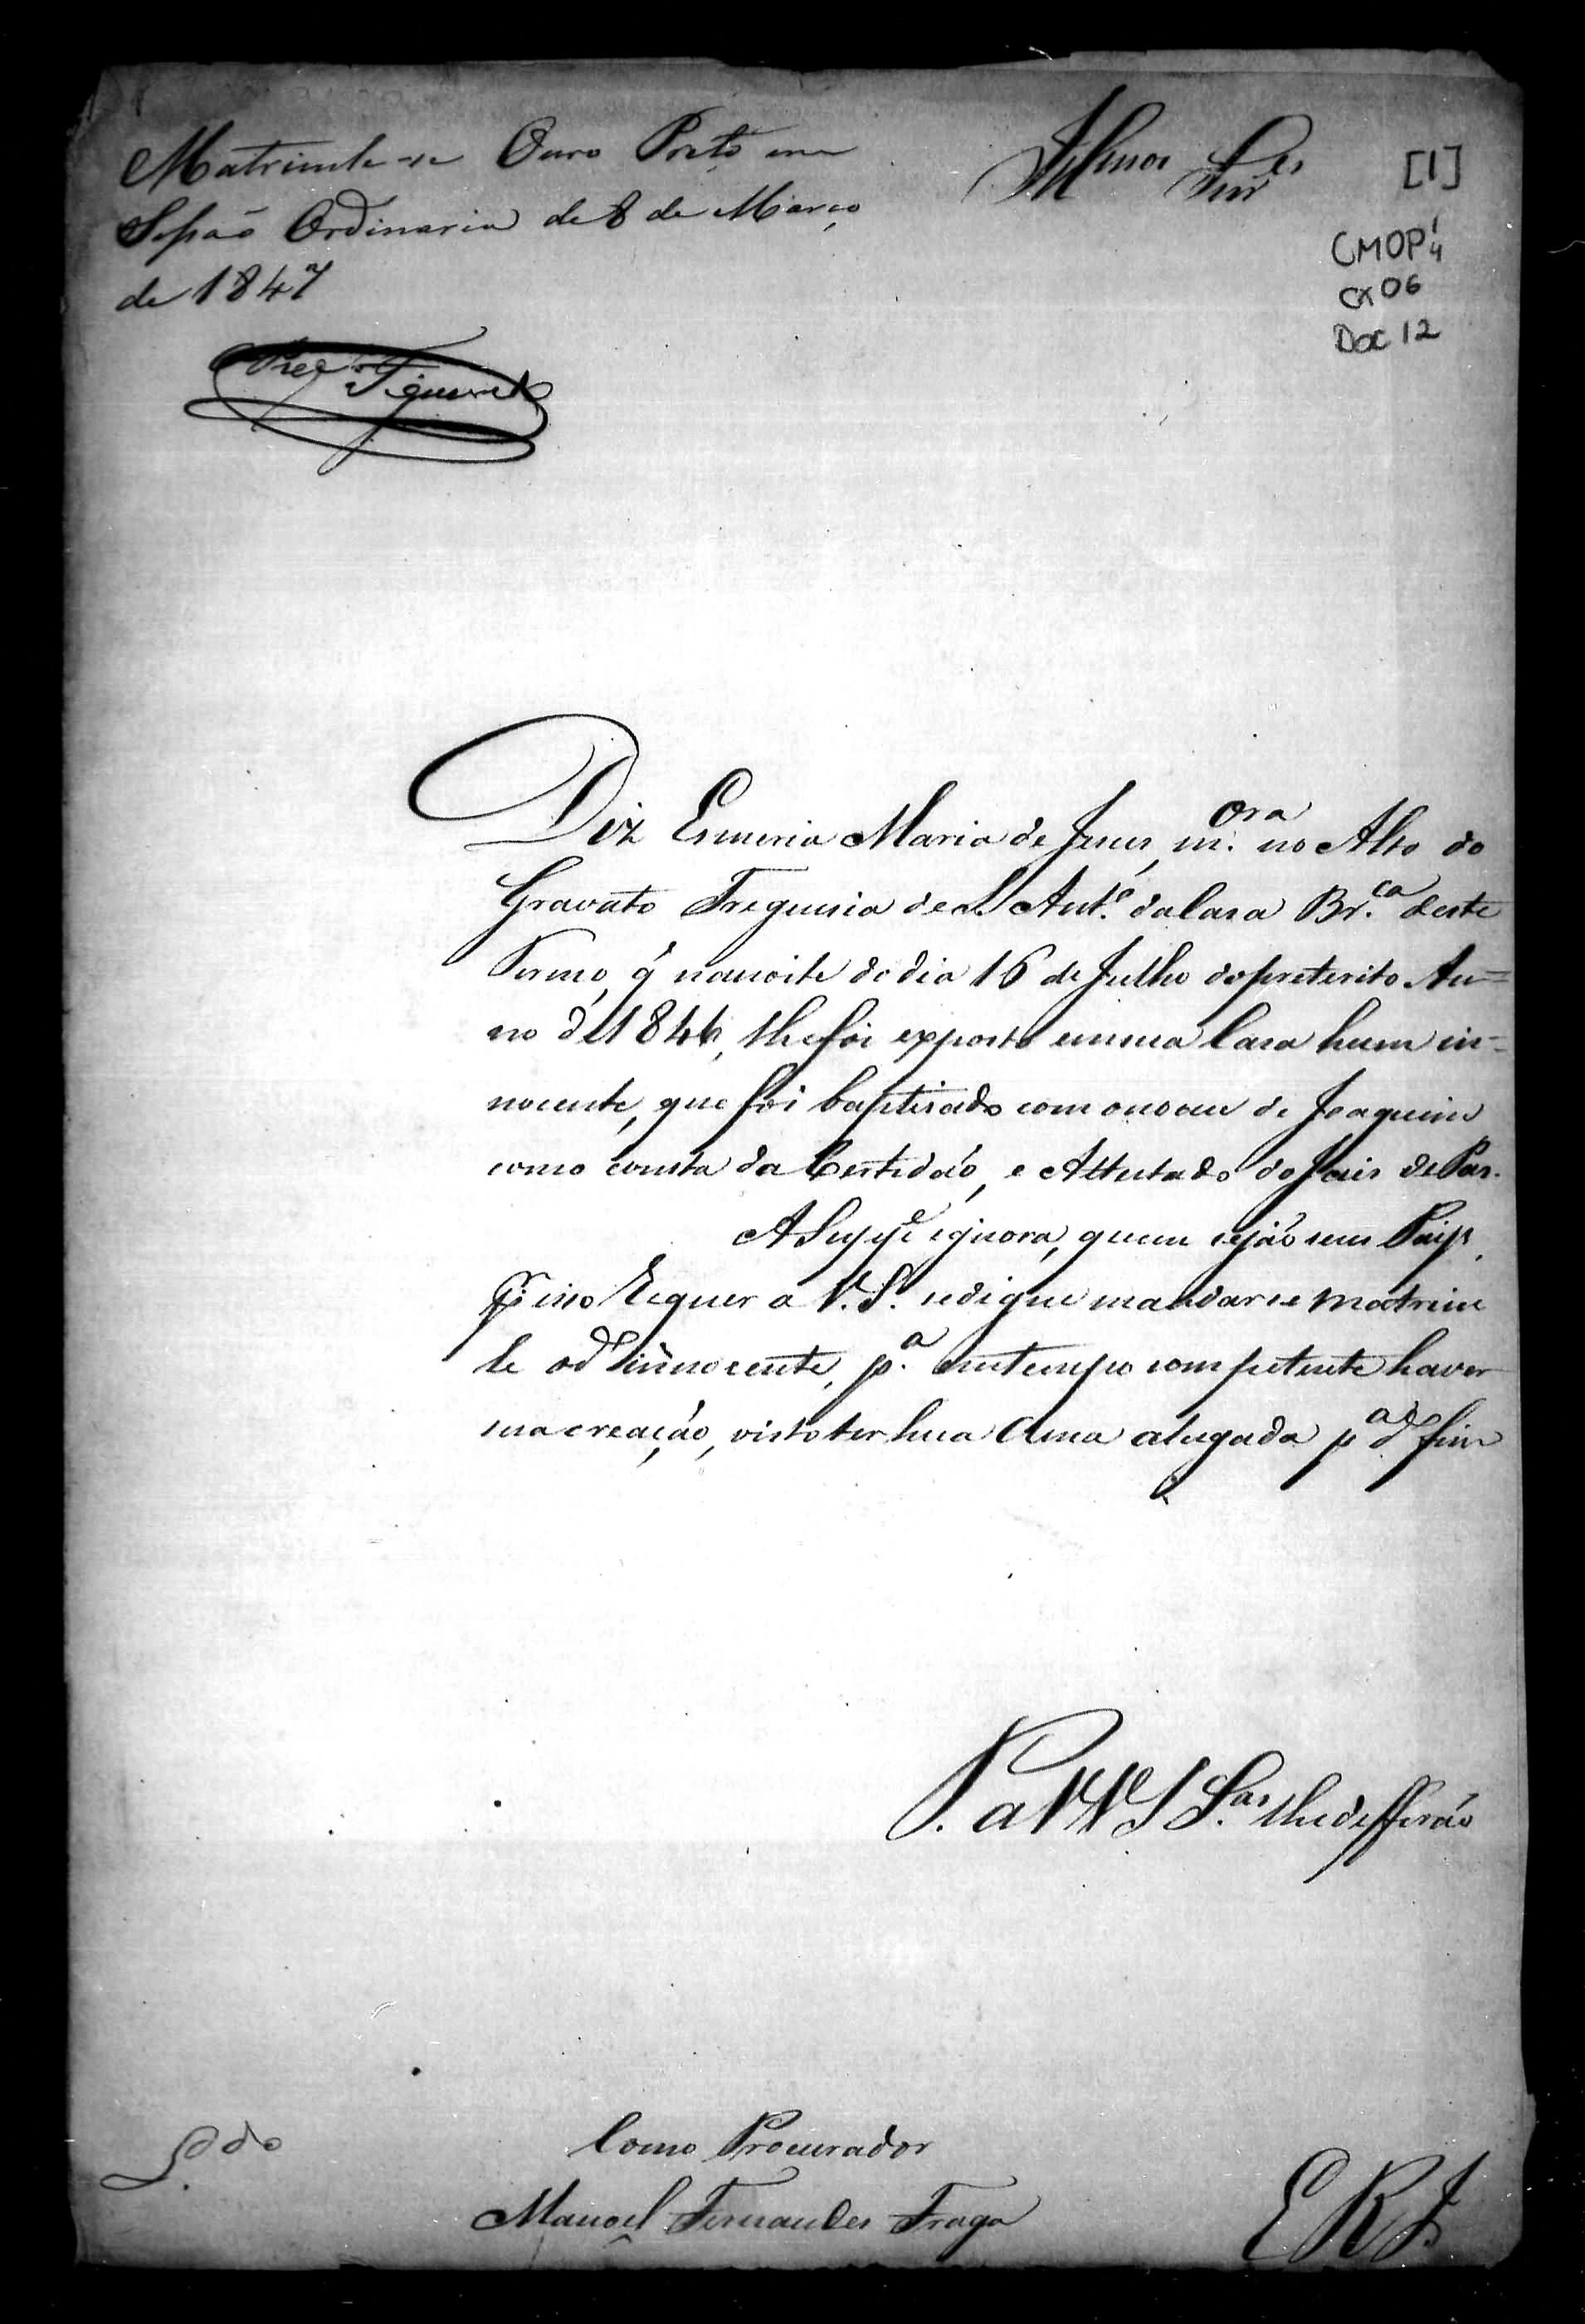 Matricule-se Ouro Preto em
Sessaõ Ordinaria de 8 de Março
de 1847
Figueredo
Illmos Snres
[1]
CMOP 1/4
CX 06
Doc 12
Diz Esmeria Maria de Jesus, m.ora no Alto do
Gravato Freguesia de S. Ant.e da Casa Br.ca deste
Termo, q̃ na noite do dia 16 de Julho do preterito An=
no de 1846, lhe foi exposto em sua Casa hum in-
nocente, que foi baptisado com o nome de Joaquim
como consta da Certidão, e Attestado do Juis de Pas.
A Supp.e ignora, quem sejão seus Paiys,
P.r isso Requer a V.S.ª se digne mandar se matricu
le o d.º innocente, p.a em tempo competente haver
sua creação, visto ter hua Ama alugada p.a d.º fim
P. a VV S S.as lhe defferão
Como Procurador
Manoel Fernandes Fraga
E R J